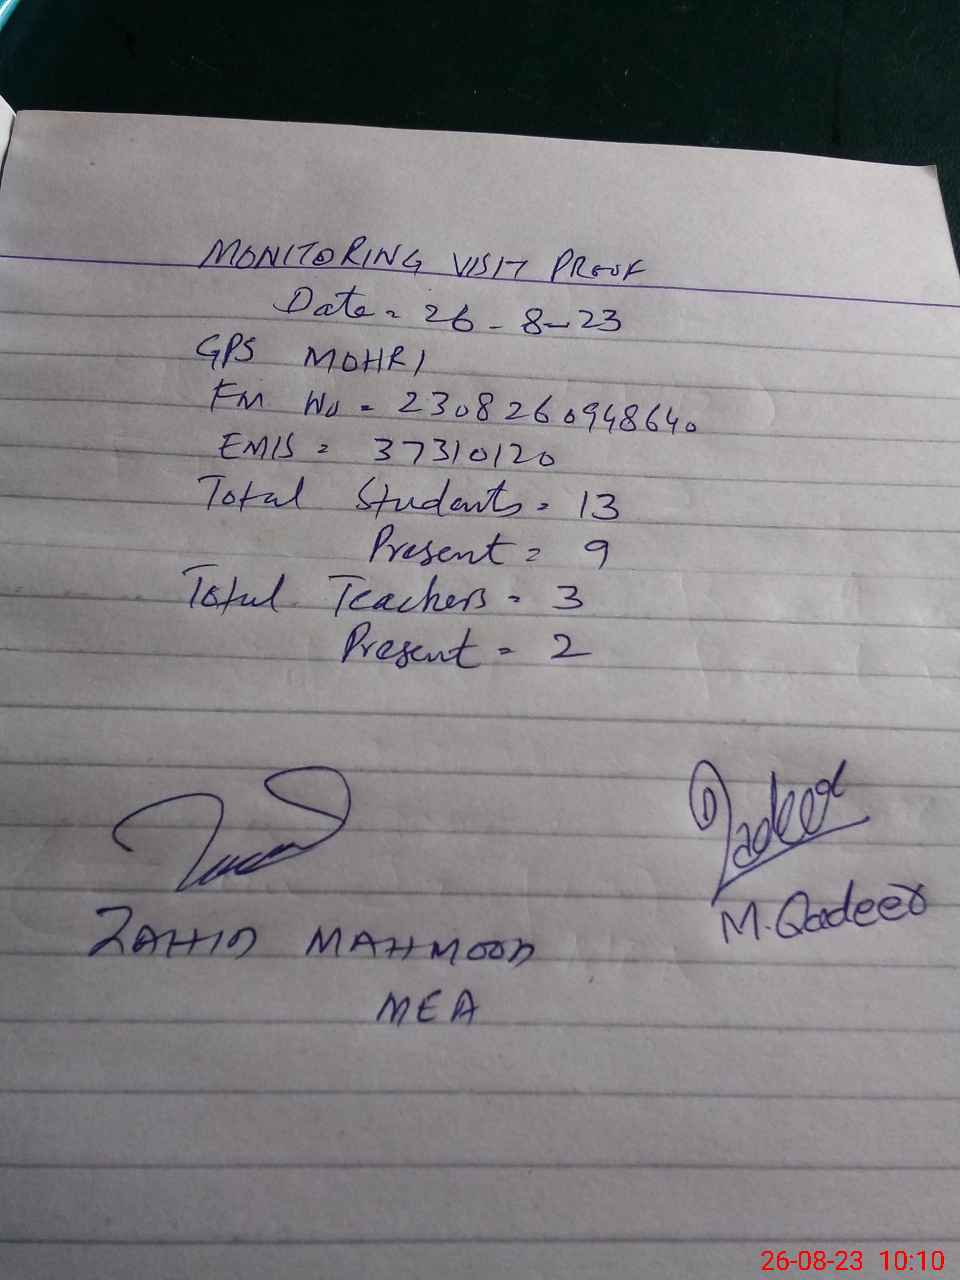 MONITORING VISIT PROOF
Date = 26-8-23
GPS MOHRI
FM No = 2308260948640
EMIS = 37310120
Total Students = 13
Present = 9
Total Teachers = 3
Present = 2
Qadeer
M. Qadeer
ZAHID MAHMOOD
MEA
26-08-23 10:10